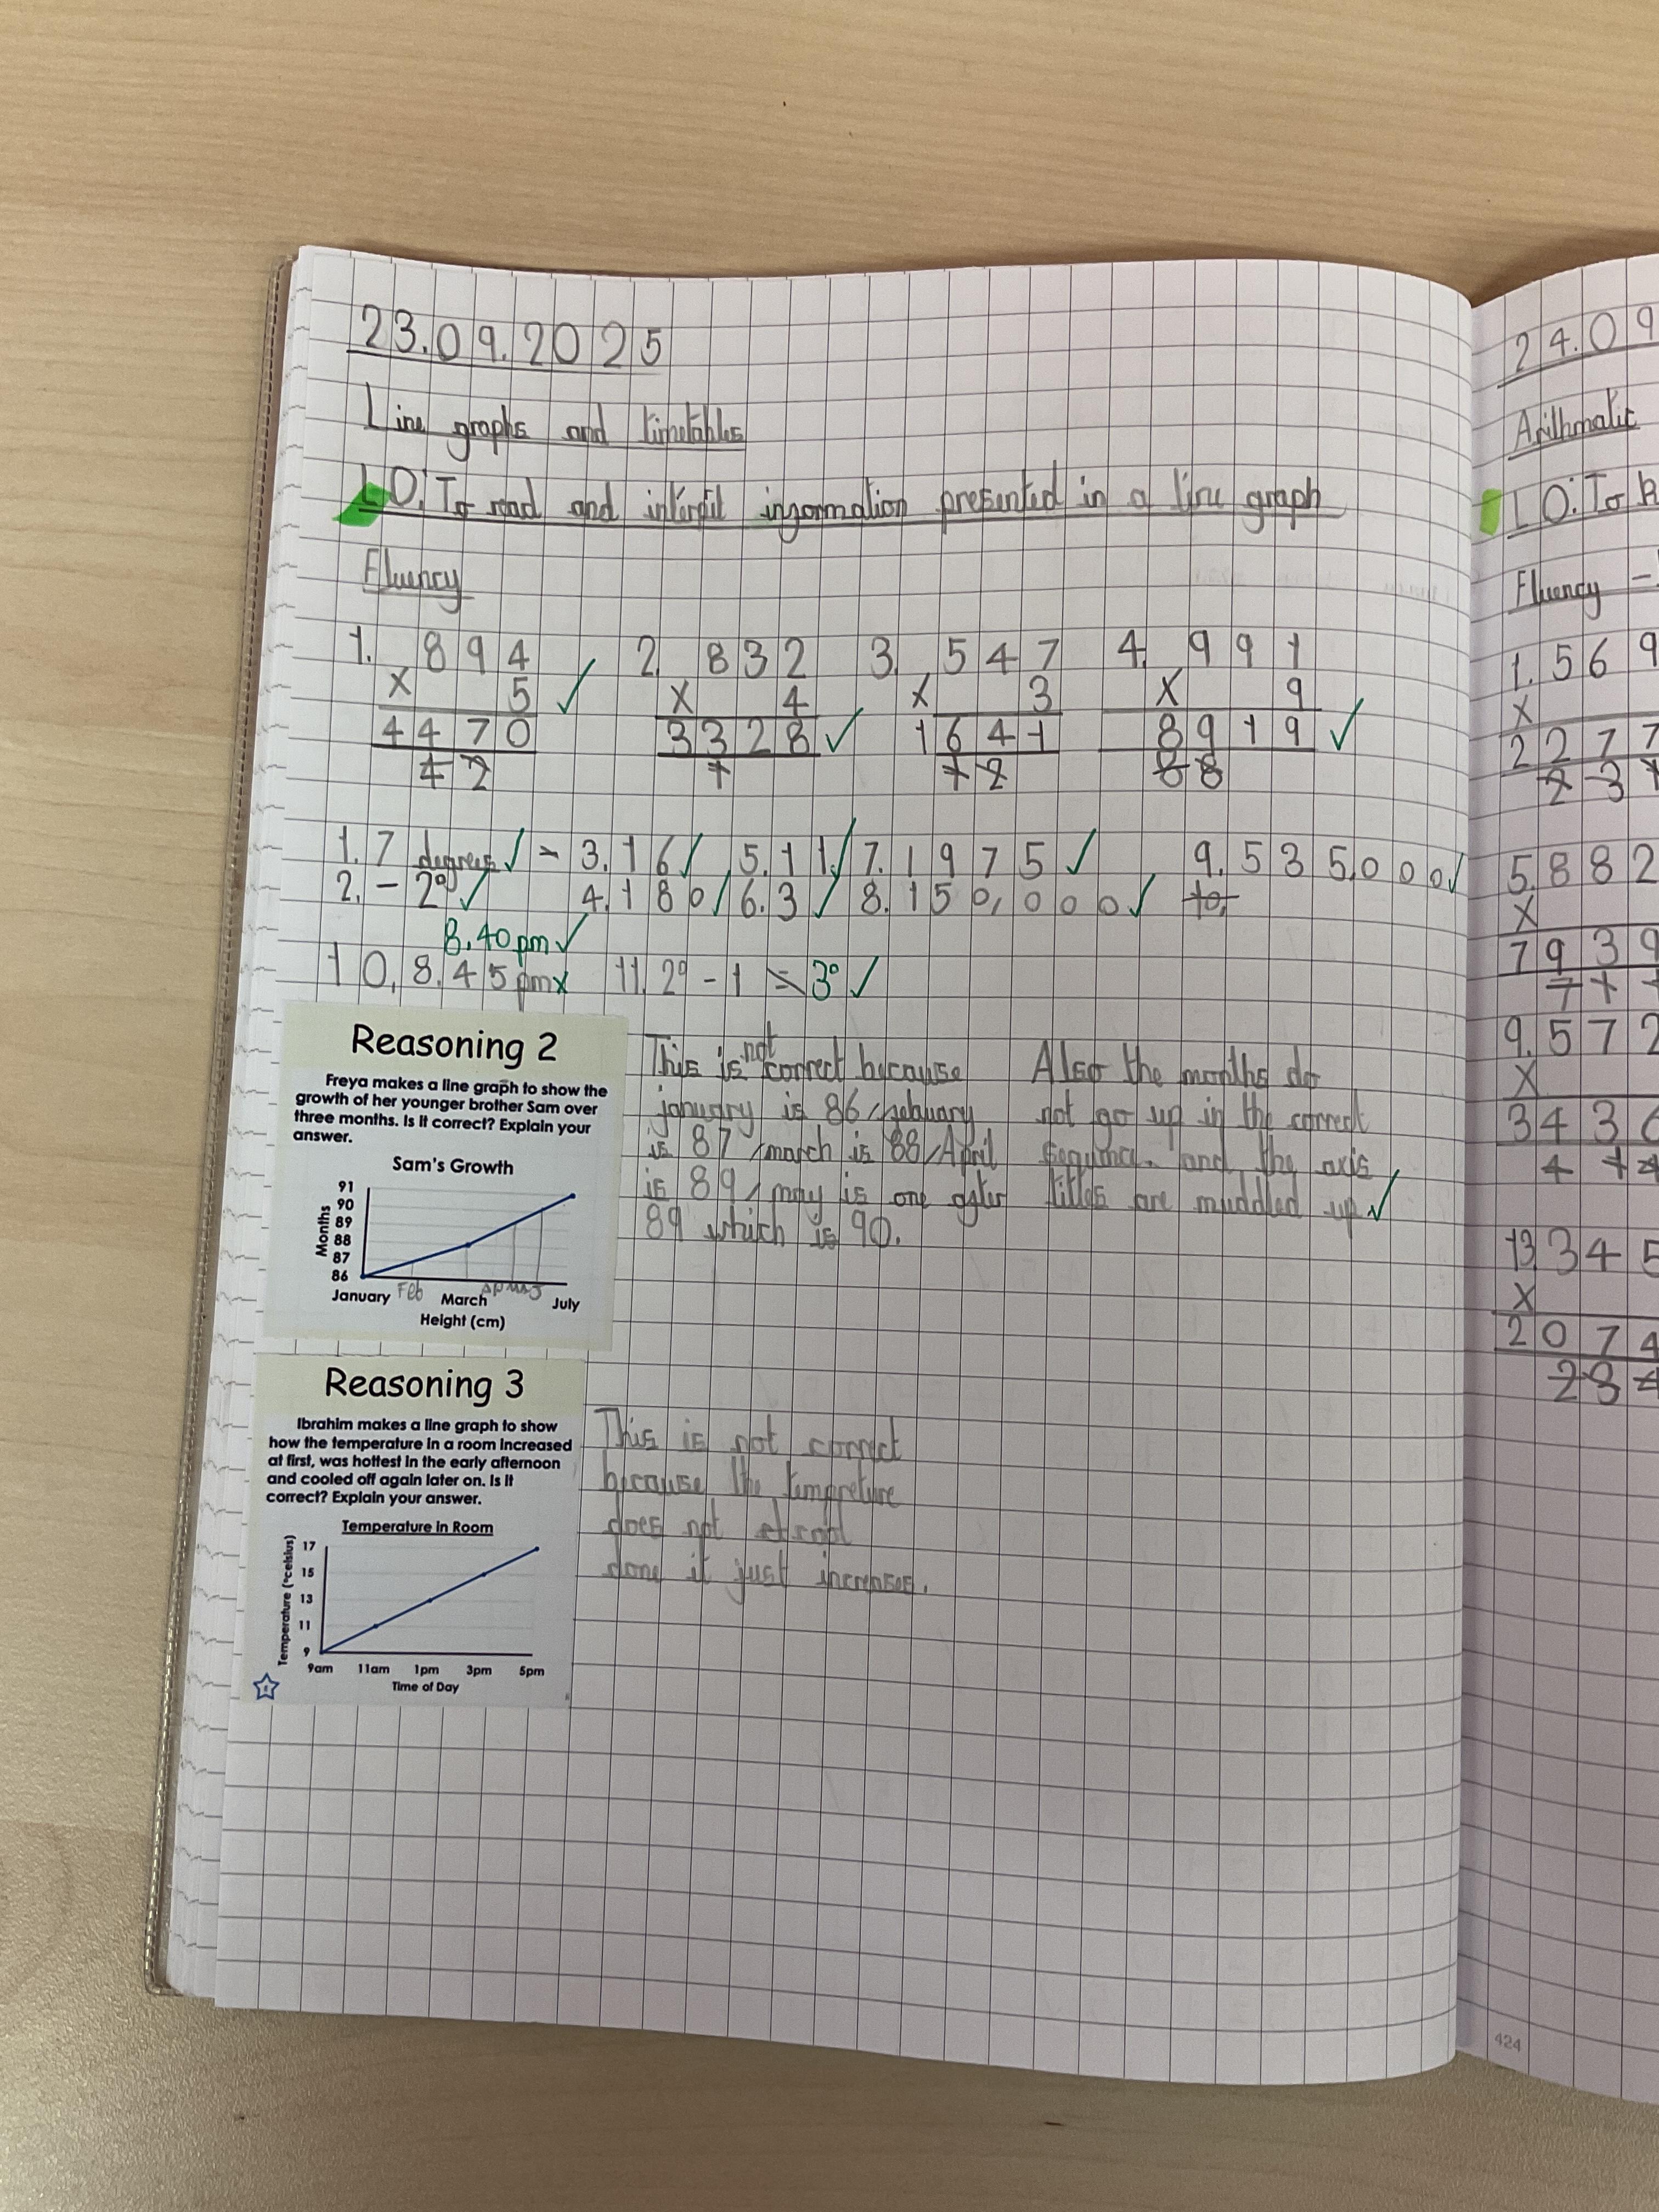 23.09.2025
Line graphs and timetables
LO: To read and interpit information presented in a line graph
Fluency
1. 894 2. 832 3. 547 4. 991
x 5 ✓ x 4 x 3 x 9
4470 3328 ✓ 1641 8919 ✓
4 2 1 1 2 8 8
1. 7 degrees ✓ - 3. 16 ✓ 5. 11 ✓ 7. 1975 ✓ 9. 535,000 ✓
2. -2° ✓ 4. 180 ✓ 6. 3 ✓ 8. 150,000 ✓ 10.
8.40pm ✓
10, 8.45pm x 11. 2° - 1 = 3° ✓
Reasoning 2
Freya makes a line graph to show the
growth of her younger brother Sam over
three months. Is it correct? Explain your
answer.
Sam's Growth
91
90
89
88
87
86
Months
January Feb March Ap M J July
Height (cm)
This is not correct because
january is 86, febuary
is 87, march is 88, April
is 89, may is one after
89 which is 90.
Also the months do
not go up in the correct
sequence. and the axis
titles are muddled up ✓
Reasoning 3
Ibrahim makes a line graph to show
how the temperature in a room increased
at first, was hottest in the early afternoon
and cooled off again later on. Is it
correct? Explain your answer.
Temperature in Room
17
15
13
11
9
Temperature (°celsius)
9am 11am 1pm 3pm 5pm
Time of Day
This is not correct
because the tempreture
does not cool
done it just increases.
24.09
Arithmatic
LO: To
Fluency -
1. 569
x
2277
2 3 1
5. 882
x
7939
7 1
9. 572
x
343
4 1
13. 345
x
2074
2 3 4
424